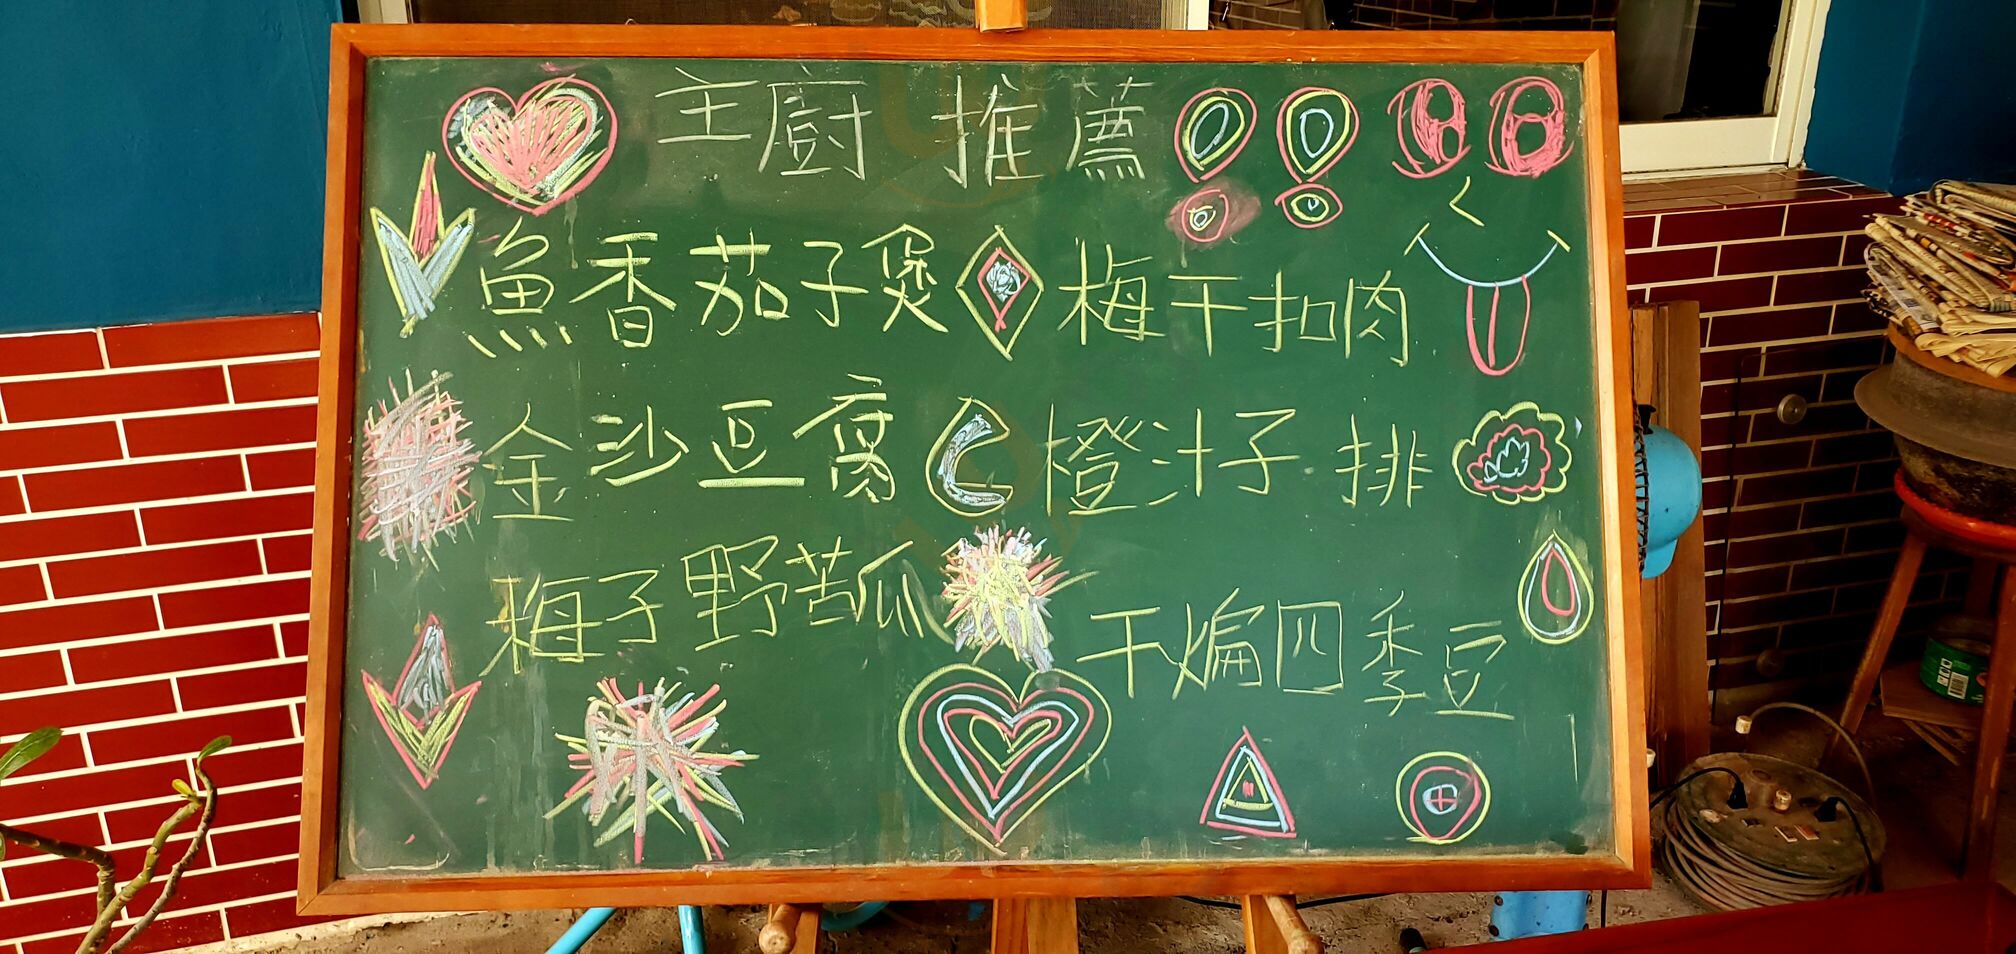 主廚推薦
魚香茄子煲 梅干扣肉
金沙豆腐 橙汁子排
梅子野苦瓜 干煸四季豆